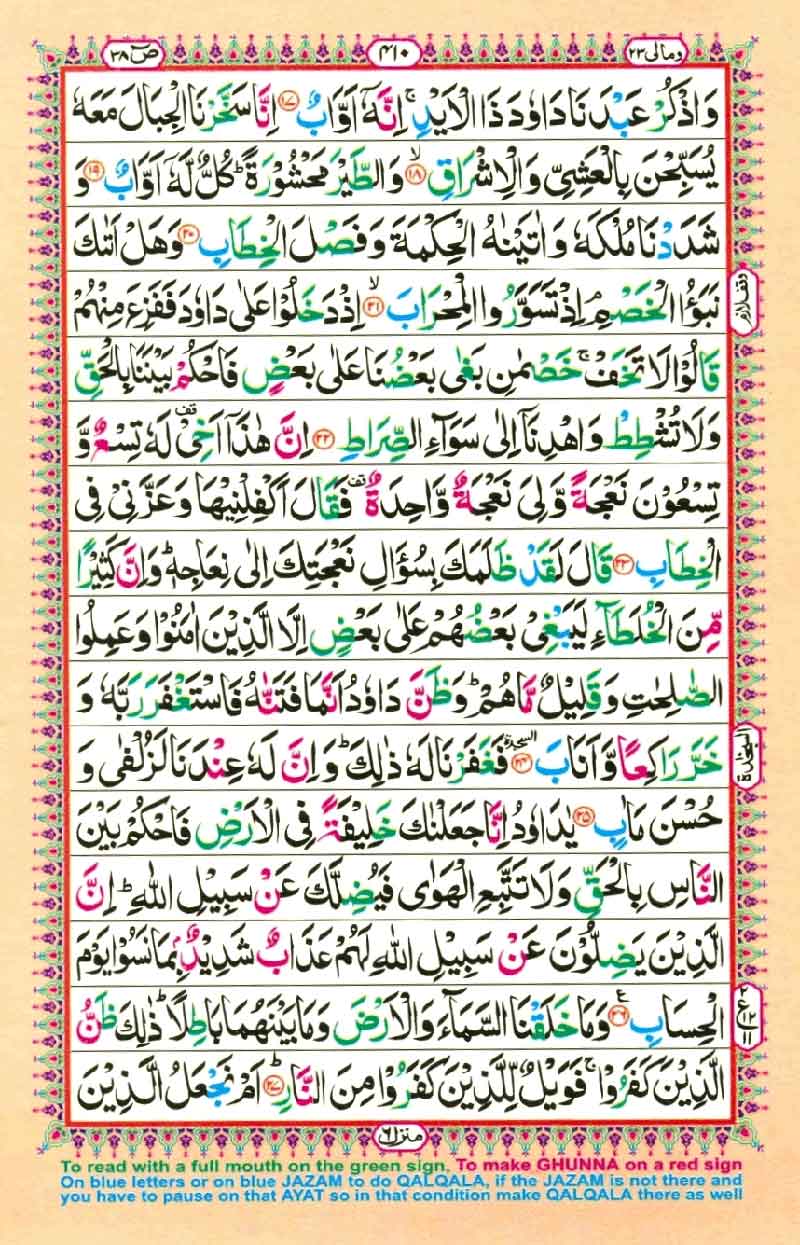 ومالی ۲۳
۴۱۰
ص ۳۸
وَاذْكُرْ عَبْدَنَا دَاوٗدَ ذَا الْاَيْدِ ۚ اِنَّهٗۤ اَوَّابٌ ﴿۱۷﴾ اِنَّا سَخَّرْنَا الْجِبَالَ مَعَهٗ
يُسَبِّحْنَ بِالْعَشِيِّ وَالْاِشْرَاقِ ﴿۱۸﴾ۙ وَالطَّيْرَ مَحْشُوْرَةً ؕ كُلٌّ لَّهٗۤ اَوَّابٌ ﴿۱۹﴾ وَ
شَدَدْنَا مُلْكَهٗ وَاٰتَيْنٰهُ الْحِكْمَةَ وَفَصْلَ الْخِطَابِ ﴿۲۰﴾ وَهَلْ اَتٰىكَ
نَبَؤُا الْخَصْمِ ۘ اِذْ تَسَوَّرُوا الْمِحْرَابَ ﴿۲۱﴾ۙ اِذْ دَخَلُوْا عَلٰى دَاوٗدَ فَفَزِعَ مِنْهُمْ
وقف لازم
قَالُوْا لَا تَخَفْ ۚ خَصْمٰنِ بَغٰى بَعْضُنَا عَلٰى بَعْضٍ فَاحْكُمْ بَيْنَنَا بِالْحَقِّ
وَلَا تُشْطِطْ وَاهْدِنَاۤ اِلٰى سَوَآءِ الصِّرَاطِ ﴿۲۲﴾ اِنَّ هٰذَاۤ اَخِيْ ۫ لَهٗ تِسْعٌ وَّ
تِسْعُوْنَ نَعْجَةً وَّلِيَ نَعْجَةٌ وَّاحِدَةٌ ۫ فَقَالَ اَكْفِلْنِيْهَا وَعَزَّنِيْ فِي
الْخِطَابِ ﴿۲۳﴾ قَالَ لَقَدْ ظَلَمَكَ بِسُؤَالِ نَعْجَتِكَ اِلٰى نِعَاجِهٖ ؕ وَاِنَّ كَثِيْرًا
مِّنَ الْخُلَطَآءِ لَيَبْغِيْ بَعْضُهُمْ عَلٰى بَعْضٍ اِلَّا الَّذِيْنَ اٰمَنُوْا وَعَمِلُوا
الصّٰلِحٰتِ وَقَلِيْلٌ مَّا هُمْ ؕ وَظَنَّ دَاوٗدُ اَنَّمَا فَتَنّٰهُ فَاسْتَغْفَرَ رَبَّهٗ وَ
خَرَّ رَاكِعًا وَّاَنَابَ ﴿۲۴﴾ السجدة فَغَفَرْنَا لَهٗ ذٰلِكَ ؕ وَاِنَّ لَهٗ عِنْدَنَا لَزُلْفٰى وَ
السجدة
حُسْنَ مَاٰبٍ ﴿۲۵﴾ يٰدَاوٗدُ اِنَّا جَعَلْنٰكَ خَلِيْفَةً فِي الْاَرْضِ فَاحْكُمْ بَيْنَ
النَّاسِ بِالْحَقِّ وَلَا تَتَّبِعِ الْهَوٰى فَيُضِلَّكَ عَنْ سَبِيْلِ اللّٰهِ ؕ اِنَّ
الَّذِيْنَ يَضِلُّوْنَ عَنْ سَبِيْلِ اللّٰهِ لَهُمْ عَذَابٌ شَدِيْدٌۢ بِمَا نَسُوْا يَوْمَ
الْحِسَابِ ﴿۲۶﴾ع وَمَا خَلَقْنَا السَّمَآءَ وَالْاَرْضَ وَمَا بَيْنَهُمَا بَاطِلًا ؕ ذٰلِكَ ظَنُّ
۲ ع ۱۲ ۱۱
الَّذِيْنَ كَفَرُوْا ۚ فَوَيْلٌ لِّلَّذِيْنَ كَفَرُوْا مِنَ النَّارِ ﴿۲۷﴾ؕ اَمْ نَجْعَلُ الَّذِيْنَ
منزل ۶
To read with a full mouth on the green sign, To make GHUNNA on a red sign
On blue letters or on blue JAZAM to do QALQALA, if the JAZAM is not there and
you have to pause on that AYAT so in that condition make QALQALA there as well